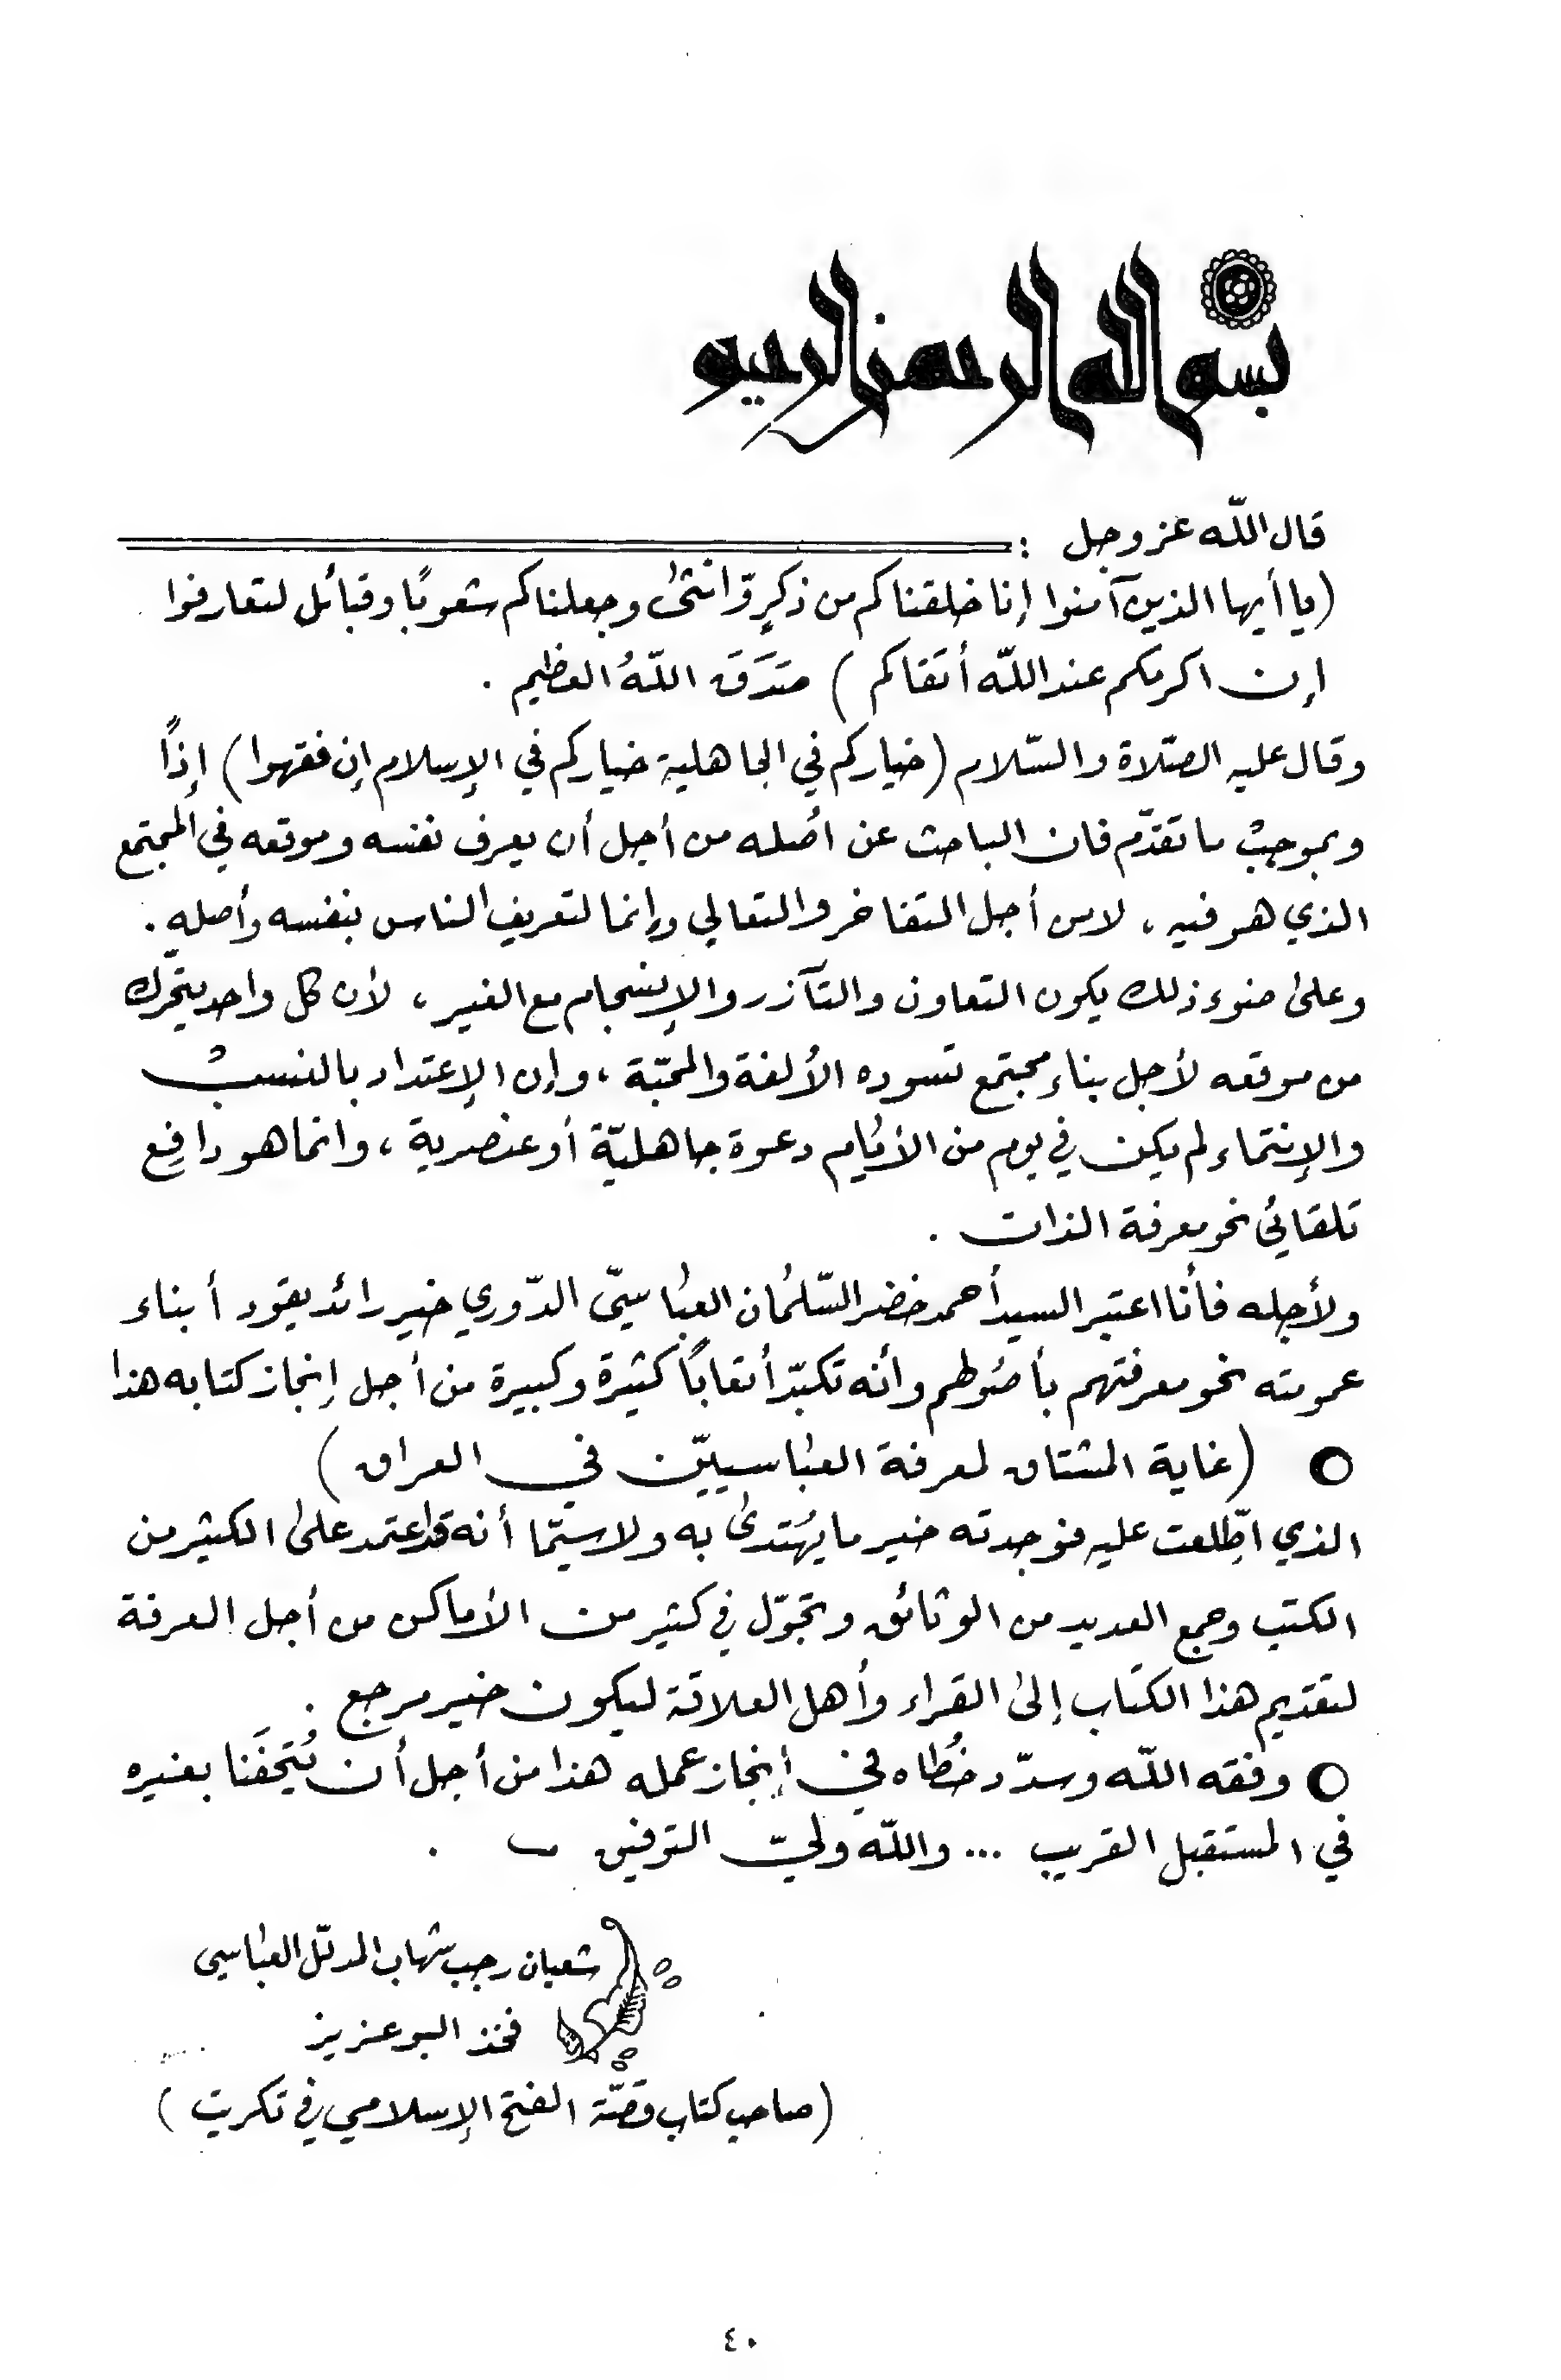 بسم الله الرحمن الرحيم
قال اللّه عز وجل :
(يا أيها الذين آمنوا إنا خلقناكم من ذكرٍ وّانثىٰ وجعلناكم شعوبًا وقبائل لتعارفوا
إن اكرمكم عند اللّه أتقاكم ) صَدَقَ اللّهُ العظيم .
وقال عليه الصّلاة والسّلام (خياركم في الجاهلية خياركم في الإسلام إن فقهوا) إذاً
وبموجب ما تقدّم فان الباحث عن اصله من أجل أن يعرف نفسه وموقعه في المجتمع
الذي هو فيه ، لا من أجل التفاخر والتعالي وإنما لتعريف الناس بنفسه وأصله .
وعلىٰ ضوء ذلك يكون التعاون والتآزر والإنسجام مع الغير ، لأن كل واحد يتحّرك
من موقعه لأجل بناء مجتمع تسوده الألفة والمحبّة ، وإن الإعتداد بالنسب
والإنتماء لم يكن في يوم من الأيام دعوة جاهليّة أو عنصرية ، وانما هو دافع
تلقائي نحو معرفة الذات .
ولأجله فأنا اعتبر السيد أحمد خضر السّلمان العباسيّ الدّوري خير رائد يقود أبناء
عمومته نحو معرفتهم بأصولهم وأنه تكبّد أتعابًا كثيرة وكبيرة من أجل إنجاز كتابه هذا
(غاية المشتاق لمعرفة العباسييّن في العراق )
الذي اطّلعت عليه فوجدته خير ما يُهتدىٰ به ولا سيّما أنه قد اعتمد علىٰ الكثير من
الكتب وجمع العديد من الوثائق وتجوّل في كثير من الأماكن من أجل المعرفة
لتقديم هذا الكتاب إلىٰ القراء وأهل العلاقة ليكون خير مرجع .
وفقه اللّه وسدّد خُطاه في إنجاز عمله هذا من أجل أن يُتحفَنا بغيره
في المستقبل القريب ... واللّه وليّ التوفيق .
شعبان رجب شهاب المدلّل العباسي
فخذ البو عزيز
(صاحب كتاب قصّة الفتح الإسلامي في تكريت )
٤٠